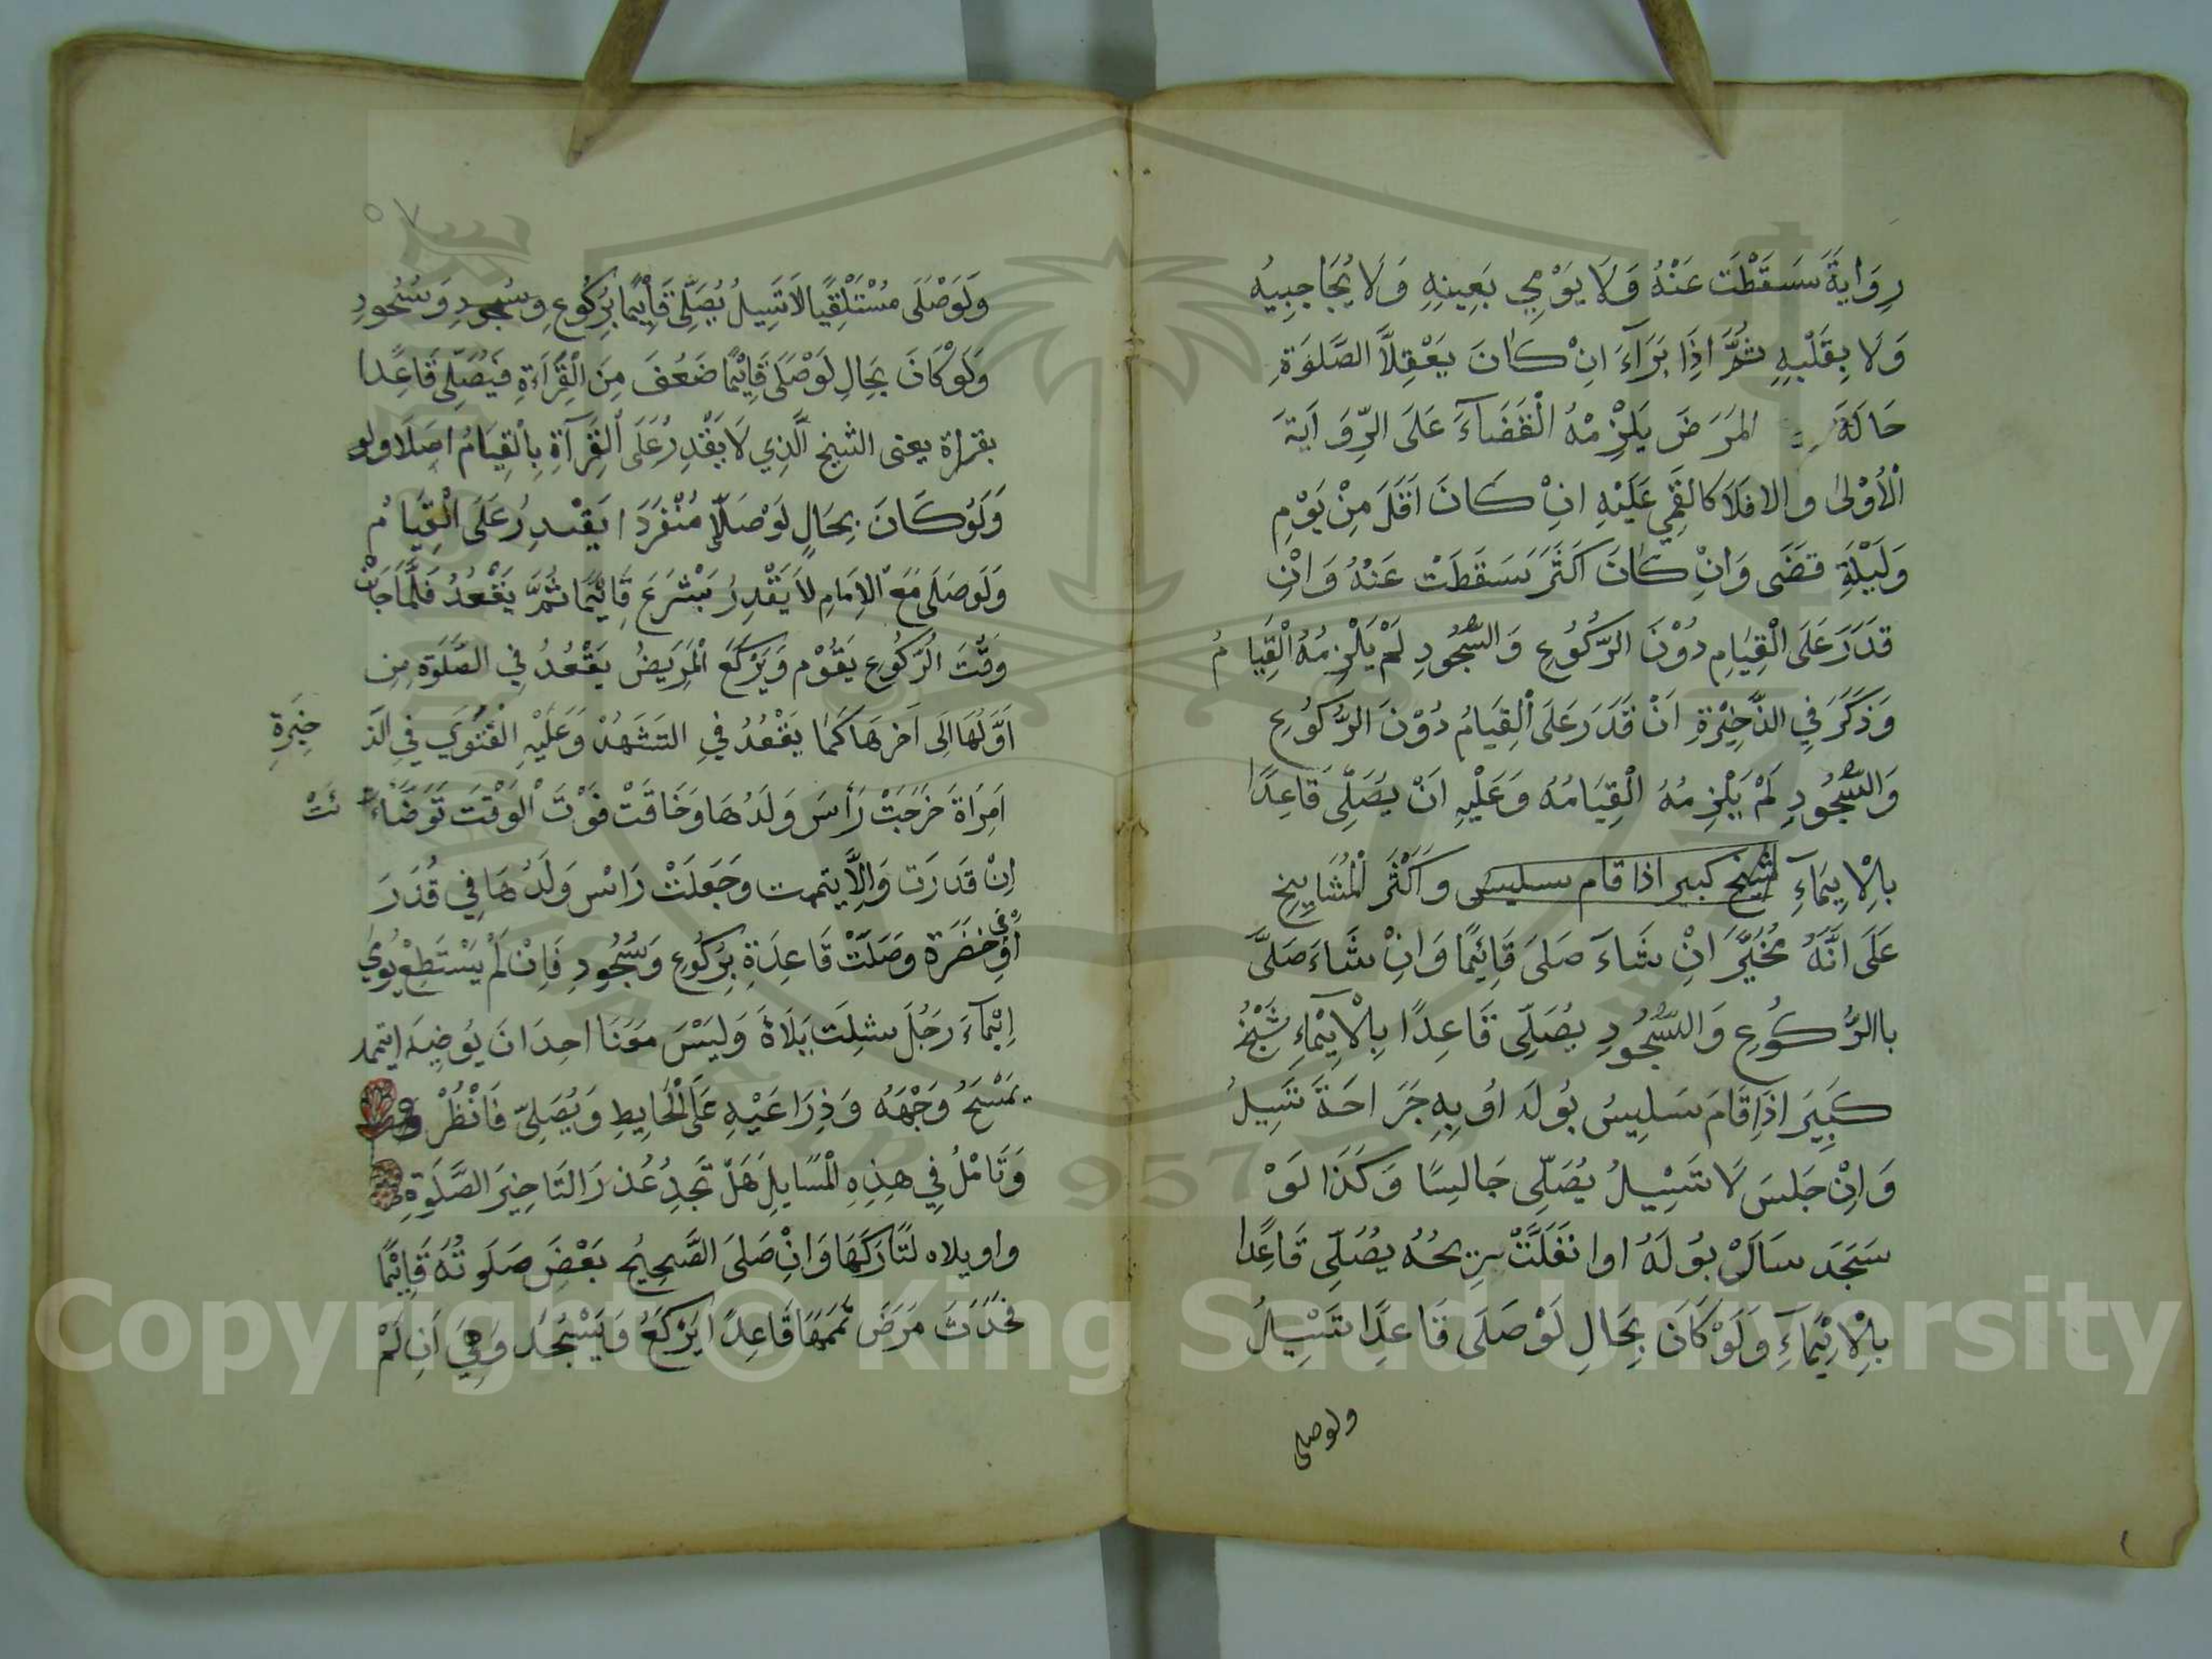 رِوَايَةَ سَسَقَطْتَ عَنْهُ وَلَا يَوْمِي بَعِينِهِ وَلَا يُحَاجِبِيهُ
وَلَا بِقَلْبِهِ ثُمَّ اذَا بَرَآءَ انْ كَانَ يَعْقِلَّا الصَّلوَةِ
حَالَةَ المَرَضَ يَلْزِمْهُ الْقَضَآءَ عَلَى الرِّوَايَةَ
الْأُوْلىٰ والا فَلَا كالغَمِي عَلَيْهِ انْ كَانَ اَقَلَ مِنْ يَوْمِ
وَلَيْلَةِ قضَى وَانْ كَانَ اَكثَرَ سَسَقَطَتْ عَنْهُ وَانْ
قدَرَ عَلَى الْقِيَامِ دُوْنَ الرُّكُوُعِ وَالسُّجُودِ لَمْ يَلْزِمُهُ الْقِيَامُ
وَذكَرَ فِي الذَّخِيْرَةِ انْ قَدَرَ عَلَى الْقِيَامُ دُوْنَ الرُّكُوُعِ
وَالسُّجُودِ لَمْ يَلْزِمُهُ الْقِيَامُهُ وَعَلْيهِ اَنْ يصُلِّى قَاعِدًا
بِالْاِيمَاءِ شيخ كبير اذا قام سليس وَاَكْثَر الْمُشَايِخِ
عَلَى انَّهُ مُخَيَّرَ انْ شَاءَ صَلىَ قَائِمًا وَانْ شَاءَ صَلىَّ
باالرُّكُوُعِ وَالسُّجُوُدِ يصُلِّى قَاعِدًا بِالْاِيْمَاءِ شَيْخُ
كَبِيَر اذَا قَامَ سَلِيسُ بُولَهُ اوُ بِهِ جَرَاحَةَ تَسِيلُ
وَاِنْ جَلسَ لَا تَسِيْلُ يُصَلِّى جَالِسًا وَكَذَا لَوْ
سَجَدَ سَالَ بوُلَهُ اوا نفَلَتَّتْ رِيحُهُ يصُلِّى قَاعِدًا
بِالْاِيْمَآءِ وَلَوْ كَانَ بِحَالِ لَوْ صَلىَ قَاعِدًا تَسِيْلُ
ولوصلى
٥٧
وَلَوَصْلَى مُسْتَلْقِيًا لَا تَسِيلُ يُصَلِّى قَائِمًا بِرُكُوُعٍ وسُجودِ وَسُجُودِ
وَلَوْ كَانَ بِحَالِ لَوْ صَلىَ قَائِمًا ضَعُفَ مِنَ الْقِرَاءَةِ فيُصَلِّى قَاعِدًا
بقراءة يعنى الشيخ اَلَّذِي لَا يَقْدِرُ عَلَى الْقِرَآةِ بِالْقِيَامُ اصَلًا ولو
وَلَوْ كَانَ بِحَالٍ لَوْ صَلّا مُنْفَرَدًا يَقْدِرُ عَلَى الْقِيَامُ
وَلَوصَلىَ مَعَ الْاِمَامِ لَا يَقْدِرُ يَشْرَعَ قَائِمًا ثُمَّ يَقْعُدُ فَلَمَّا جَانَ
وقْتَ الرُّكُوُعِ يَقُوْم وَيَرْكَعَ الْمَرِيَضُ يَقْعُدُ فِي الصَّلَوَةِ مِنِ
اَوَّلُهَا اِلَى اَخرِهَا كَمَا يَقْعُدُ فيِ التَشَهُدْ وَعَلَيْهِ الْفَتْوَي فيِ الَّذ
خِيَرةِ
امِرَاة خرَجَتْ رَأسَ وَلَدُهَا وَخَافَتْ فَوْتَ الْوَقْتَ تَوَضَّاءَ
ئَتْ
اِنْ قَدَرَت وَاِلَّا يتمت وجَعلَتْ رَاسْ وَلَدُهَا فِي قُدَرَ
اوْ في حَضَرَة وصَلَّتْ قَاعِدَةٍ بِرُكُوُعِ وَسُجُودِ فَاِنْ لَمْ يَسْتَطِعْ يُومِي
اِيْمَاءَ رَجُلَ سشلت يَلَاهُ وَلَيَسْ مَعَنَا احدَانَ يوُضِيهَ ايتمد
يمَسْحَ وُجْهَهُ وَذِرَاعَيْهِ عَلَى الْحَايِطِ وَيُصَلِّى فَانْظُرْ
وَتَامْلُ فِي هذِهِ الْمَسَايلِ هَلْ تجِدِ عُذرَ التَاخِيرَ الصَّلَوةِ
واويلاه لتَارَكَهَا وَانْ صَلىَ الصَّحِيحُ بَعْضَ صَلَوتُهُ قَائِمًا
فحَدَثَ مَرَضَ تمَمَهَا قَاعِدًا يَرْكَعُ وَيَسْجُدْ وَمِيَ اَنِ لَمْ
Copyright © King Saud University
1957